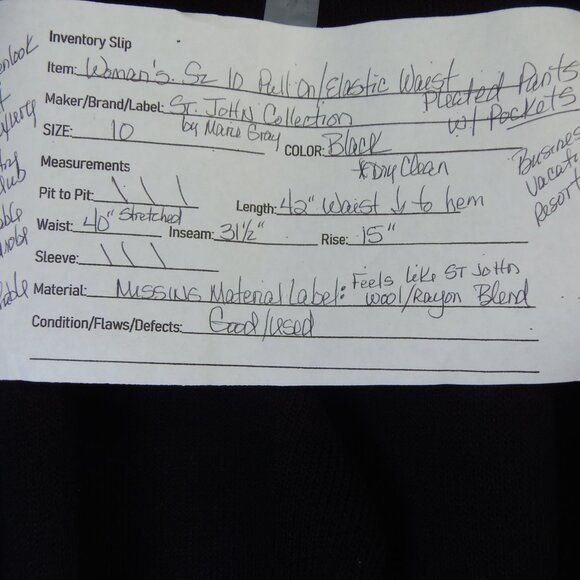 Inventory Slip
Item: Woman's Sz 10 Pull on/Elastic Waist
Pleated Pants
w/ Pockets
Maker/Brand/Label: St. John Collection
by Marie Gray
SIZE: 10 COLOR: Black
*Dry Clean
Business
Vacation
Resort
Measurements
Pit to Pit: \ \ \ Length: 42" Waist ↓ to hem
Waist: 40" Stretched Inseam: 31 1/2" Rise: 15"
Sleeve: \ \ \
Material: Missing Material Label: Feels Like St John
Wool/Rayon Blend
Condition/Flaws/Defects: Good/used